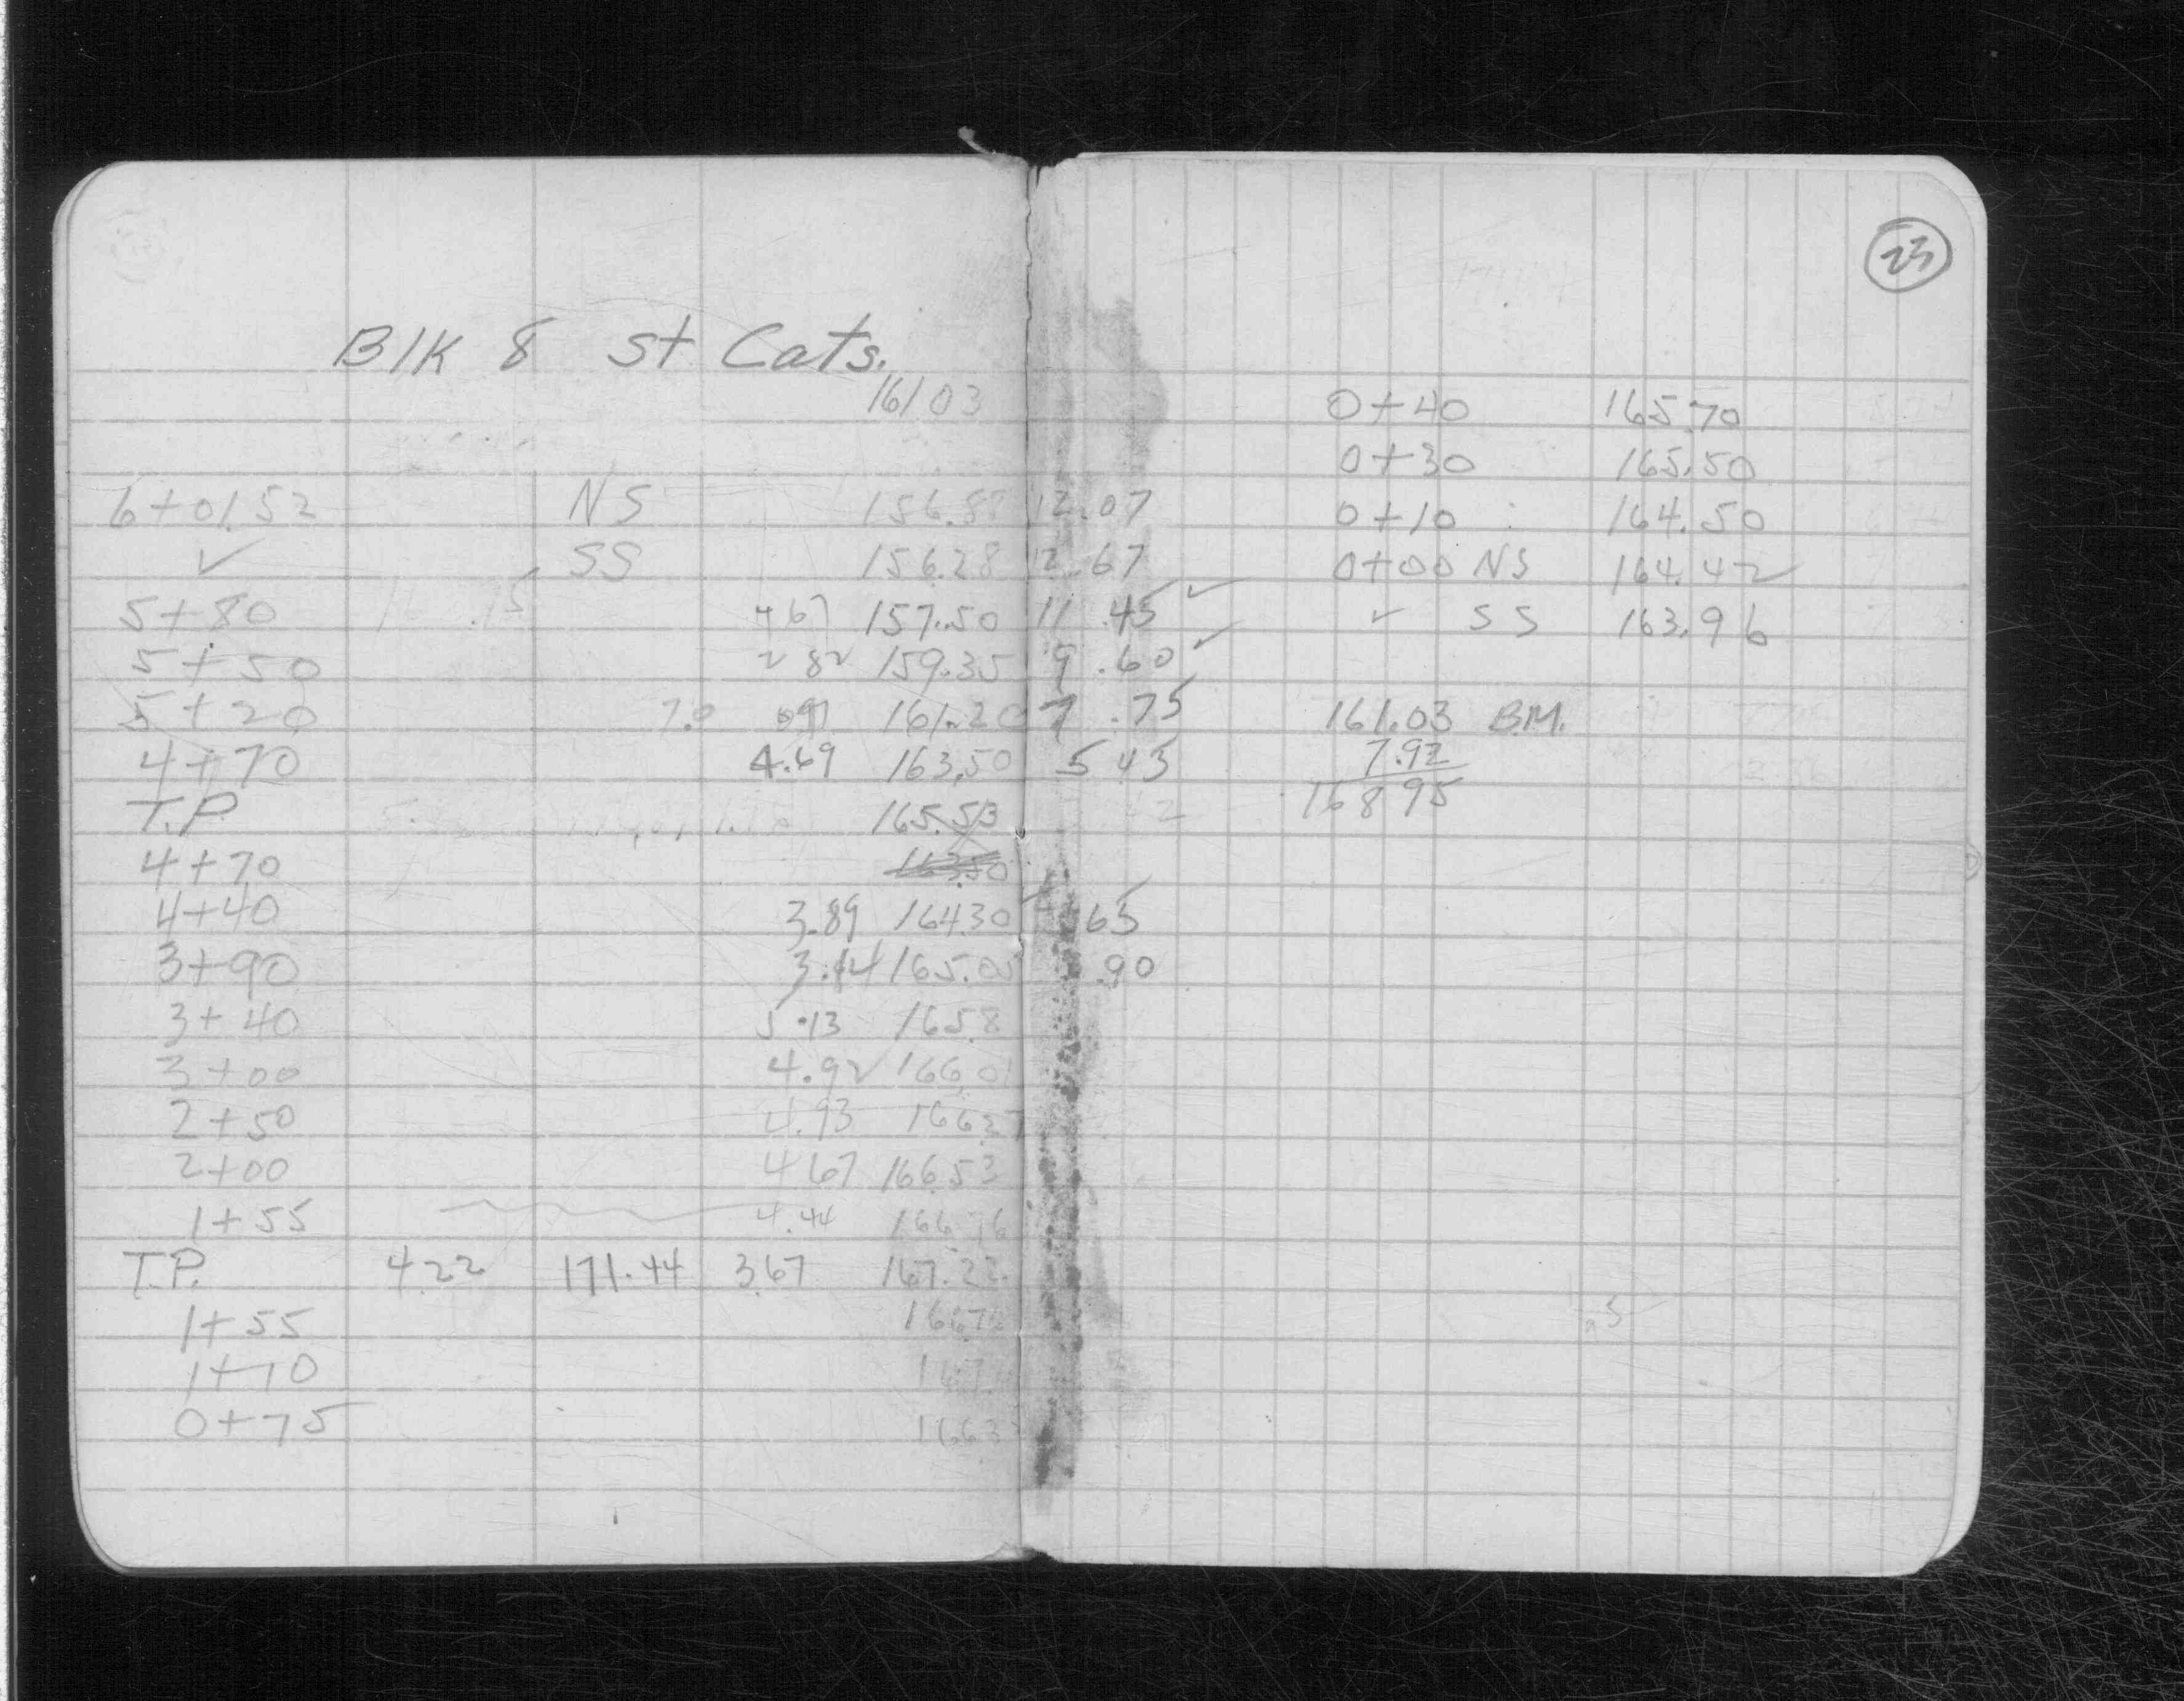 23
Blk 8 St Cats.
161 03
6+01.52 NS 156.88 12.07
✓ SS 156.28 12.67
5+80 4 67 157.50 11.45 ✓
5+50 2 82 159.35 9.60 ✓
5+20 7.0 0 97 161.20 7.75
4+70 4.69 163.50 5 45
T.P. 165.53
4+70 163.50
4+40 3.89 164.30 65
3+90 3.14 165.05 .90
3+40 5.13 165.8
3+00 4.92 166.01
2+50 4.93 166.27
2+00 4 67 166.53
1+55 4.44 166.76
T.P. 4.22 171.44 3.67 167.22
1+55 166.7
1+10
0+75 166.3
0+40 165.70
0+30 165.50
0+10 164.50
0+00 NS 164.42
✓ SS 163.96
161.03 B.M.
7.92
168 95